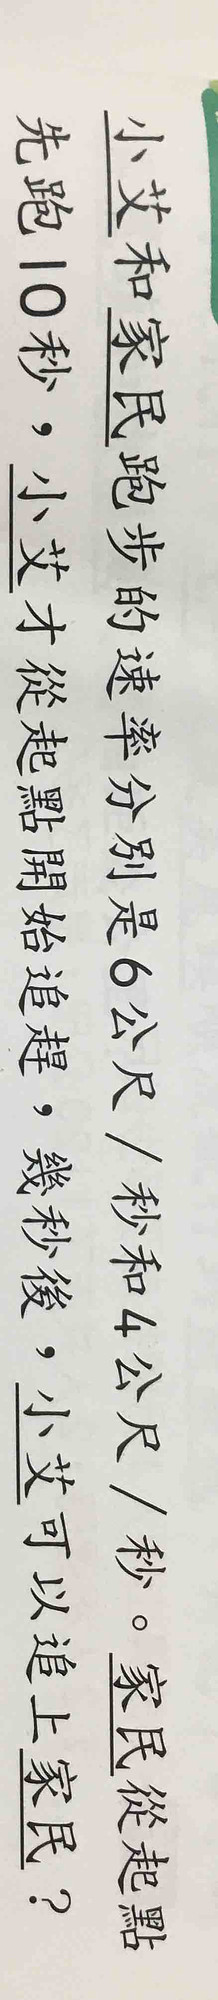 小艾和家民跑步的速率分別是6公尺/秒和4公尺/秒。家民從起點
先跑10秒，小艾才從起點開始追趕，幾秒後，小艾可以追上家民？